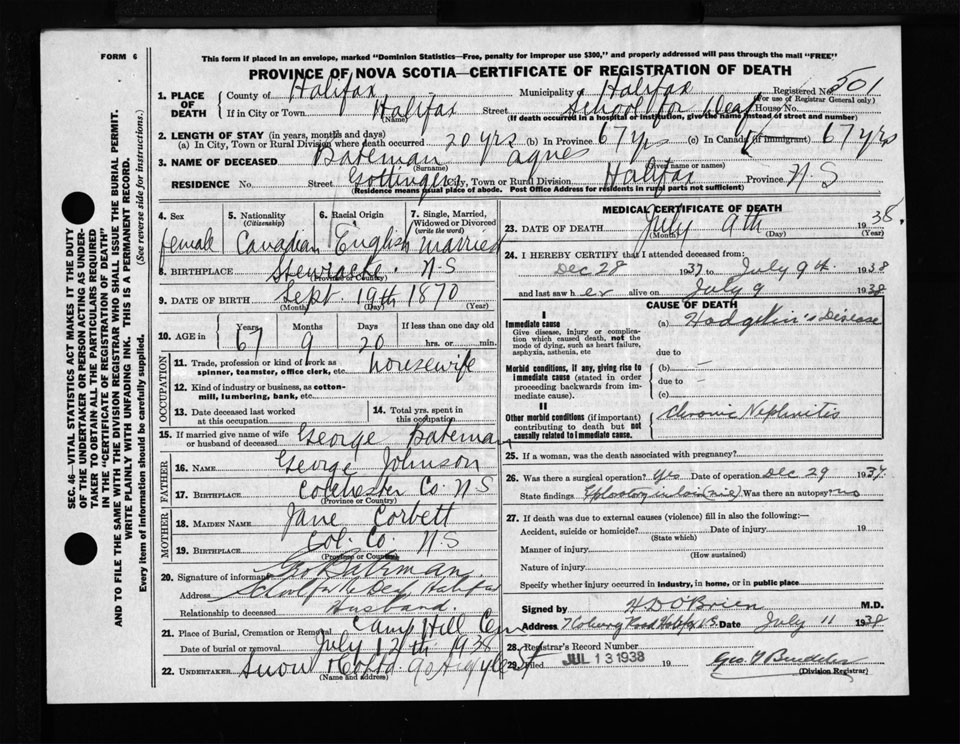 FORM 6
This form if placed in an envelope, marked "Dominion Statistics—Free, penalty for improper use $300," and properly addressed will pass through the mail "FREE"
PROVINCE OF NOVA SCOTIA—CERTIFICATE OF REGISTRATION OF DEATH
1. PLACE OF DEATH
County of Halifax Municipality Halifax Registered No. 501
(For use of Registrar General only)
If in City or Town Halifax Street School for Deaf House No.
(Name)
(If death occurred in a hospital or institution, give the name instead of street and number)
2. LENGTH OF STAY (in years, months and days)
(a) In City, Town or Rural Division where death occurred 20 yrs (b) In Province 67 yrs (c) In Canada (if immigrant) 67 yrs
3. NAME OF DECEASED Bateman Agnes
(Surname) (Given name or names)
RESIDENCE No. Street Gottingen City, Town or Rural Division Halifax Province N-S
(Residence means usual place of abode. Post Office Address for residents in rural parts not sufficient)
SEC. 46—VITAL STATISTICS ACT MAKES IT THE DUTY
OF THE UNDERTAKER OR PERSON ACTING AS UNDER-
TAKER TO OBTAIN ALL THE PARTICULARS REQUIRED
IN THE "CERTIFICATE OF REGISTRATION OF DEATH"
AND TO FILE THE SAME WITH THE DIVISION REGISTRAR WHO SHALL ISSUE THE BURIAL PERMIT.
WRITE PLAINLY WITH UNFADING INK. THIS IS A PERMANENT RECORD.
Every item of information should be carefully supplied. (See reverse side for instructions.)
4. Sex 5. Nationality (Citizenship) 6. Racial Origin 7. Single, Married, Widowed or Divorced (write the word)
female Canadian English married
8. BIRTHPLACE Stewiacke. N-S
(Province or Country)
9. DATE OF BIRTH Sept. 19th 1870
(Month) (Day) (Year)
10. AGE in Years Months Days If less than one day old
67 9 20 hrs. or min.
OCCUPATION
11. Trade, profession or kind of work as spinner, teamster, office clerk, etc. housewife
12. Kind of industry or business, as cotton-mill, lumbering, bank, etc.
13. Date deceased last worked at this occupation 14. Total yrs. spent in this occupation
15. If married give name of wife or husband of deceased George Bateman
FATHER
16. NAME George Johnson
17. BIRTHPLACE Colchester Co. N S
(Province or Country)
MOTHER
18. MAIDEN NAME Jane Corbett
19. BIRTHPLACE Col. Co. N S
(Province or Country)
20. Signature of informant Geo Bateman
Address Halifax
Relationship to deceased Husband.
21. Place of Burial, Cremation or Removal Camp Hill Cem
Date of burial or removal July 12th 1938
22. UNDERTAKER Snow 90 Argyle St
(Name and address)
MEDICAL CERTIFICATE OF DEATH
23. DATE OF DEATH July 9th 1938.
(Month) (Day) (Year)
24. I HEREBY CERTIFY that I attended deceased from:
Dec 28 1937 to July 9th 1938
and last saw her alive on July 9 1938
CAUSE OF DEATH
I
Immediate cause
Give disease, injury or complication which caused death, not the mode of dying, such as heart failure, asphyxia, asthenia, etc
(a) Hodgkin's Disease
due to
Morbid conditions, if any, giving rise to immediate cause (stated in order proceeding backwards from immediate cause).
(b) —
due to —
(c)
II
Other morbid conditions (if important) contributing to death but not causally related to immediate cause.
Chronic Nephritis
25. If a woman, was the death associated with pregnancy?
26. Was there a surgical operation? Yes Date of operation Dec 29 1937.
State findings Was there an autopsy? no
27. If death was due to external causes (violence) fill in also the following:—
Accident, suicide or homicide? Date of injury 19
(State which)
Manner of injury
(How sustained)
Nature of injury
Specify whether injury occurred in industry, in home, or in public place
Signed by H D O'Brien M.D.
Address Date July 11 1938
28. Registrar's Record Number
29. Filed JUL 13 1938 19
(Division Registrar)